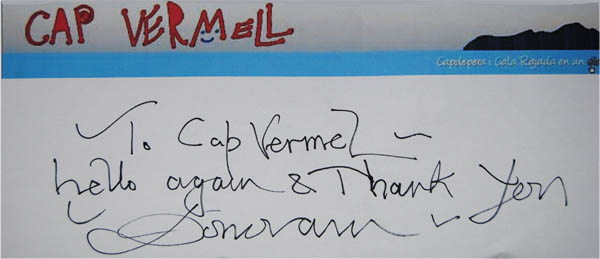 CAP VERMELL
Capdepera i Cala Rajada en un
To Cap Vermel
hello again & Thank You
Donovan